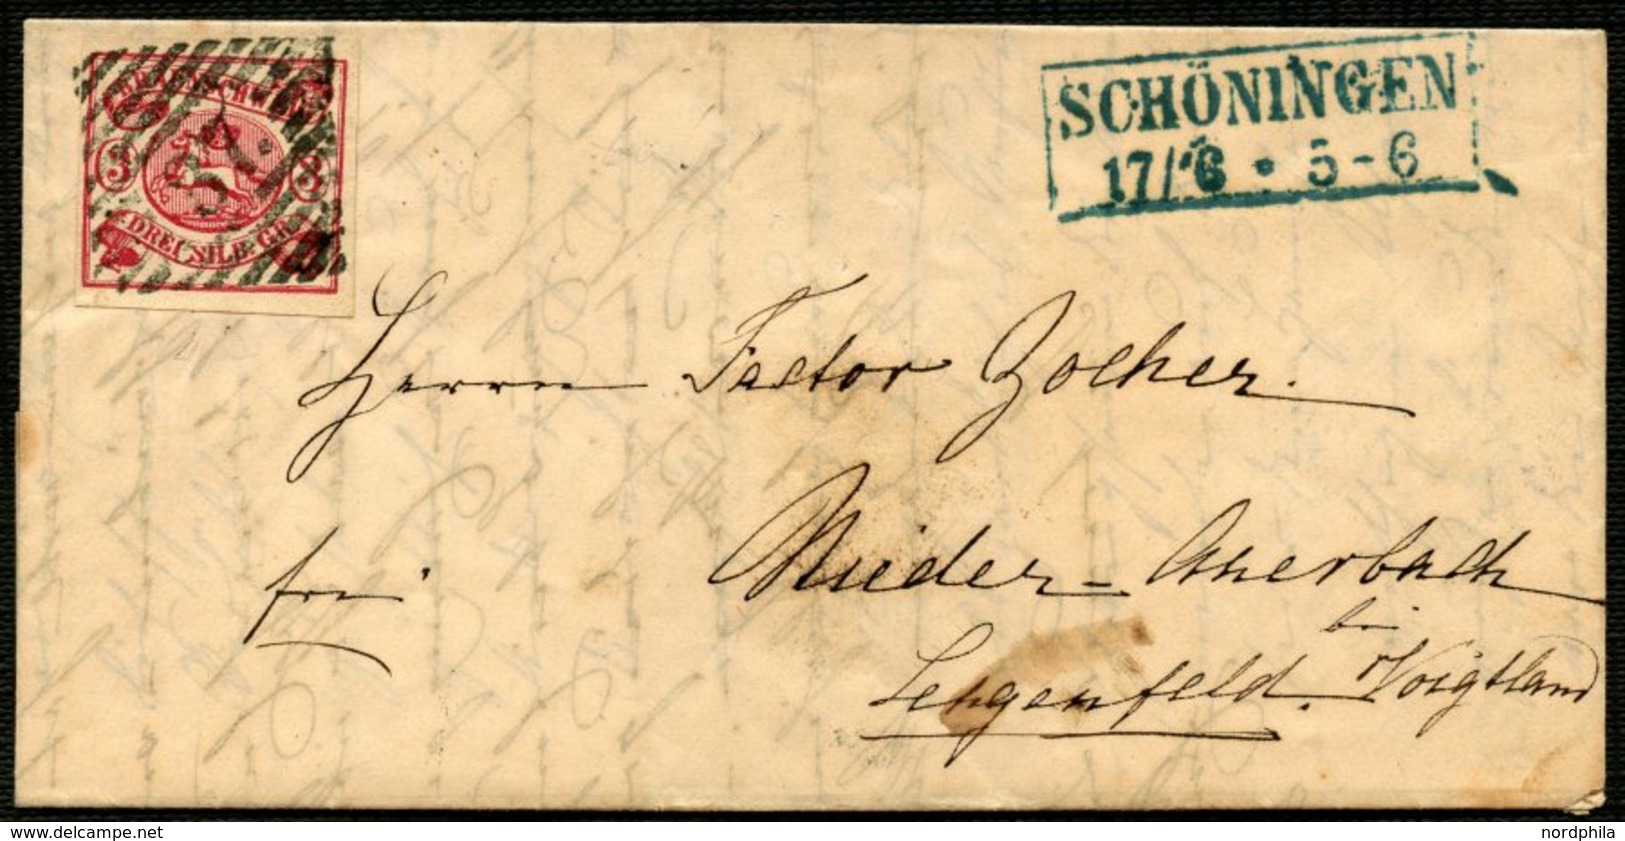 BRAUNSCHWEIG
3 3
DREI SILB. GR.
37.
SCHÖNINGEN
17/6 • 5-6
Herrn Factor Zocher.
frei
Nieder-Auerbach
bei
Lengenfeld. Voigtland
nordphila